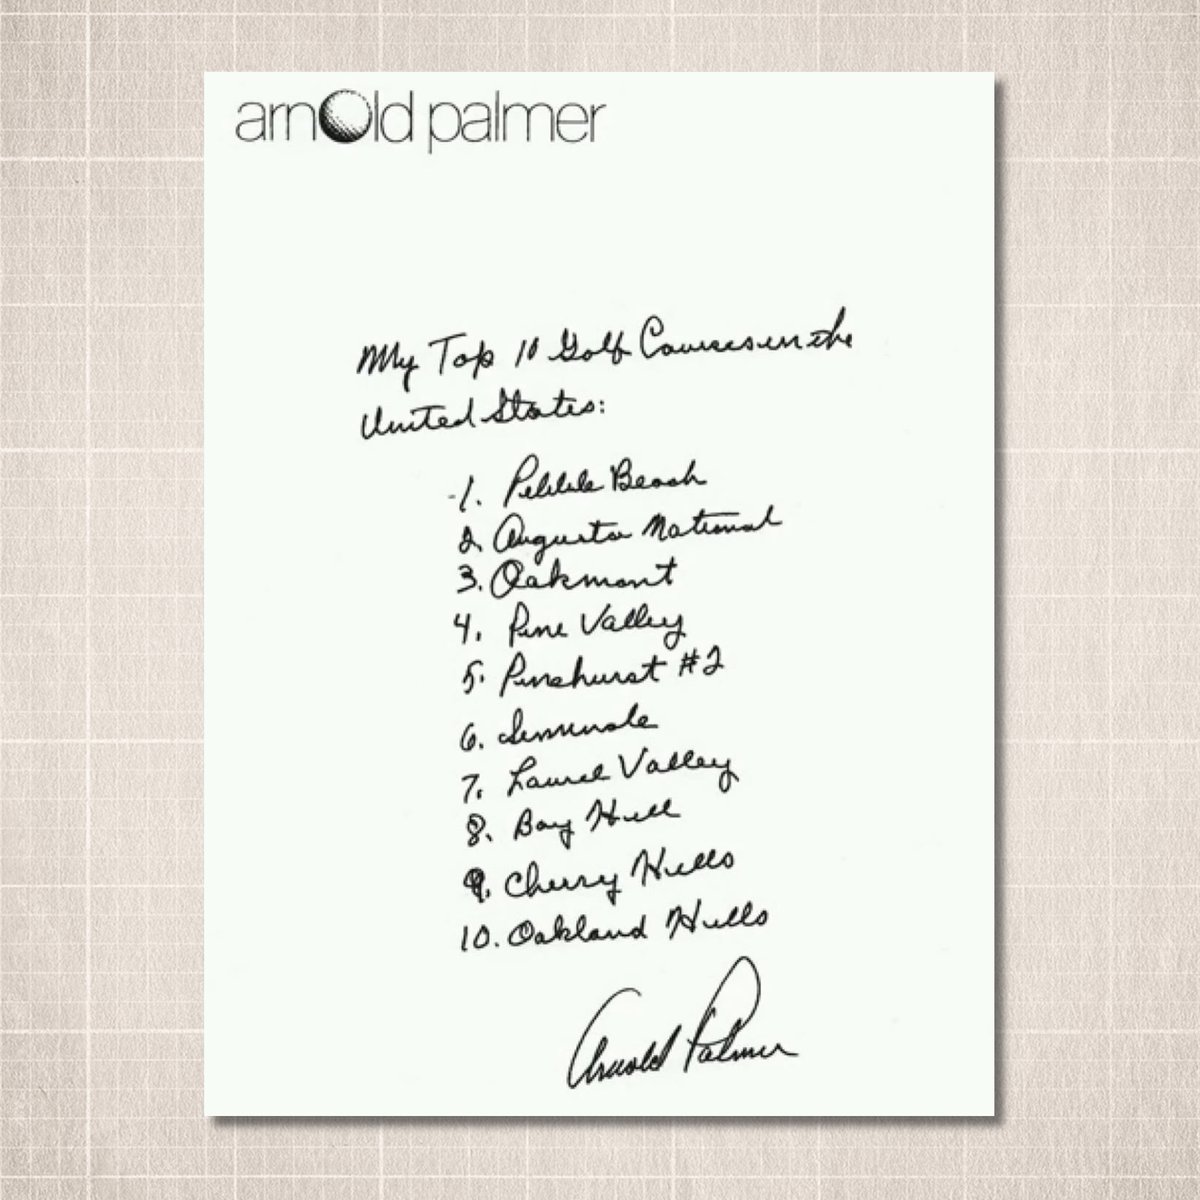 arnold palmer
My Top 10 Golf Courses in the
United States:
1. Pebble Beach
2. Augusta National
3. Oakmont
4. Pine Valley
5. Pinehurst #2
6. Seminole
7. Laurel Valley
8. Bay Hill
9. Cherry Hills
10. Oakland Hills
Arnold Palmer